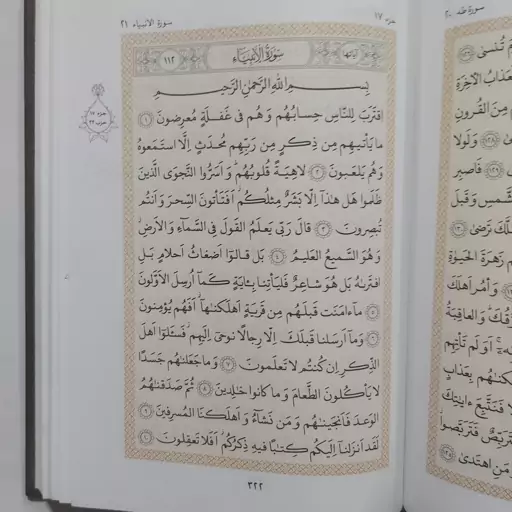 سورة الانبیاء ۲۱
جزء ۱۷
آیاتها
سُورَةُ الْأَنْبِيَاءِ
۱۱۲
بِسْمِ اللَّهِ الرَّحْمٰنِ الرَّحِيمِ
اقْتَرَبَ لِلنَّاسِ حِسَابُهُمْ وَهُمْ فِي غَفْلَةٍ مُعْرِضُونَ ﴿۱﴾
مَا يَأْتِيهِمْ مِنْ ذِكْرٍ مِنْ رَبِّهِمْ مُحْدَثٍ إِلَّا اسْتَمَعُوهُ
وَهُمْ يَلْعَبُونَ ﴿۲﴾ لَاهِيَةً قُلُوبُهُمْ وَأَسَرُّوا النَّجْوَى الَّذِينَ
ظَلَمُوا هَلْ هٰذَا إِلَّا بَشَرٌ مِثْلُكُمْ أَفَتَأْتُونَ السِّحْرَ وَأَنْتُمْ
تُبْصِرُونَ ﴿۳﴾ قَالَ رَبِّي يَعْلَمُ الْقَوْلَ فِي السَّمَاءِ وَالْأَرْضِ
وَهُوَ السَّمِيعُ الْعَلِيمُ ﴿۴﴾ بَلْ قَالُوا أَضْغَاثُ أَحْلَامٍ بَلِ
افْتَرَاهُ بَلْ هُوَ شَاعِرٌ فَلْيَأْتِنَا بِآيَةٍ كَمَا أُرْسِلَ الْأَوَّلُونَ
﴿۵﴾ مَا آمَنَتْ قَبْلَهُمْ مِنْ قَرْيَةٍ أَهْلَكْنَاهَا أَفَهُمْ يُؤْمِنُونَ
﴿۶﴾ وَمَا أَرْسَلْنَا قَبْلَكَ إِلَّا رِجَالًا نُوحِي إِلَيْهِمْ فَسْئَلُوا أَهْلَ
الذِّكْرِ إِنْ كُنْتُمْ لَا تَعْلَمُونَ ﴿۷﴾ وَمَا جَعَلْنَاهُمْ جَسَدًا
لَا يَأْكُلُونَ الطَّعَامَ وَمَا كَانُوا خَالِدِينَ ﴿۸﴾ ثُمَّ صَدَقْنَاهُمُ
الْوَعْدَ فَأَنْجَيْنَاهُمْ وَمَنْ نَشَاءُ وَأَهْلَكْنَا الْمُسْرِفِينَ ﴿۹﴾
لَقَدْ أَنْزَلْنَا إِلَيْكُمْ كِتَابًا فِيهِ ذِكْرُكُمْ أَفَلَا تَعْقِلُونَ ﴿۱۰﴾
۳۲۲
جزء ۱۷
حزب ۳۳
سورة طه ۲۰
الْآخِرَةِ
مِنَ الْقُرُونِ
﴿۱۲۸﴾ وَلَوْلَا
﴿۱۲۹﴾ فَاصْبِرْ
وَقَبْلَ
لَعَلَّكَ تَرْضَى ﴿۱۳۰﴾
زَهْرَةَ الْحَيٰوةِ
﴿۱۳۱﴾ وَأْمُرْ أَهْلَكَ
وَالْعَاقِبَةُ
أَوَلَمْ تَأْتِهِمْ
بِعَذَابٍ
فَنَتَّبِعَ آيَاتِكَ
فَتَرَبَّصُوا
وَمَنِ اهْتَدَى ﴿۱۳۵﴾